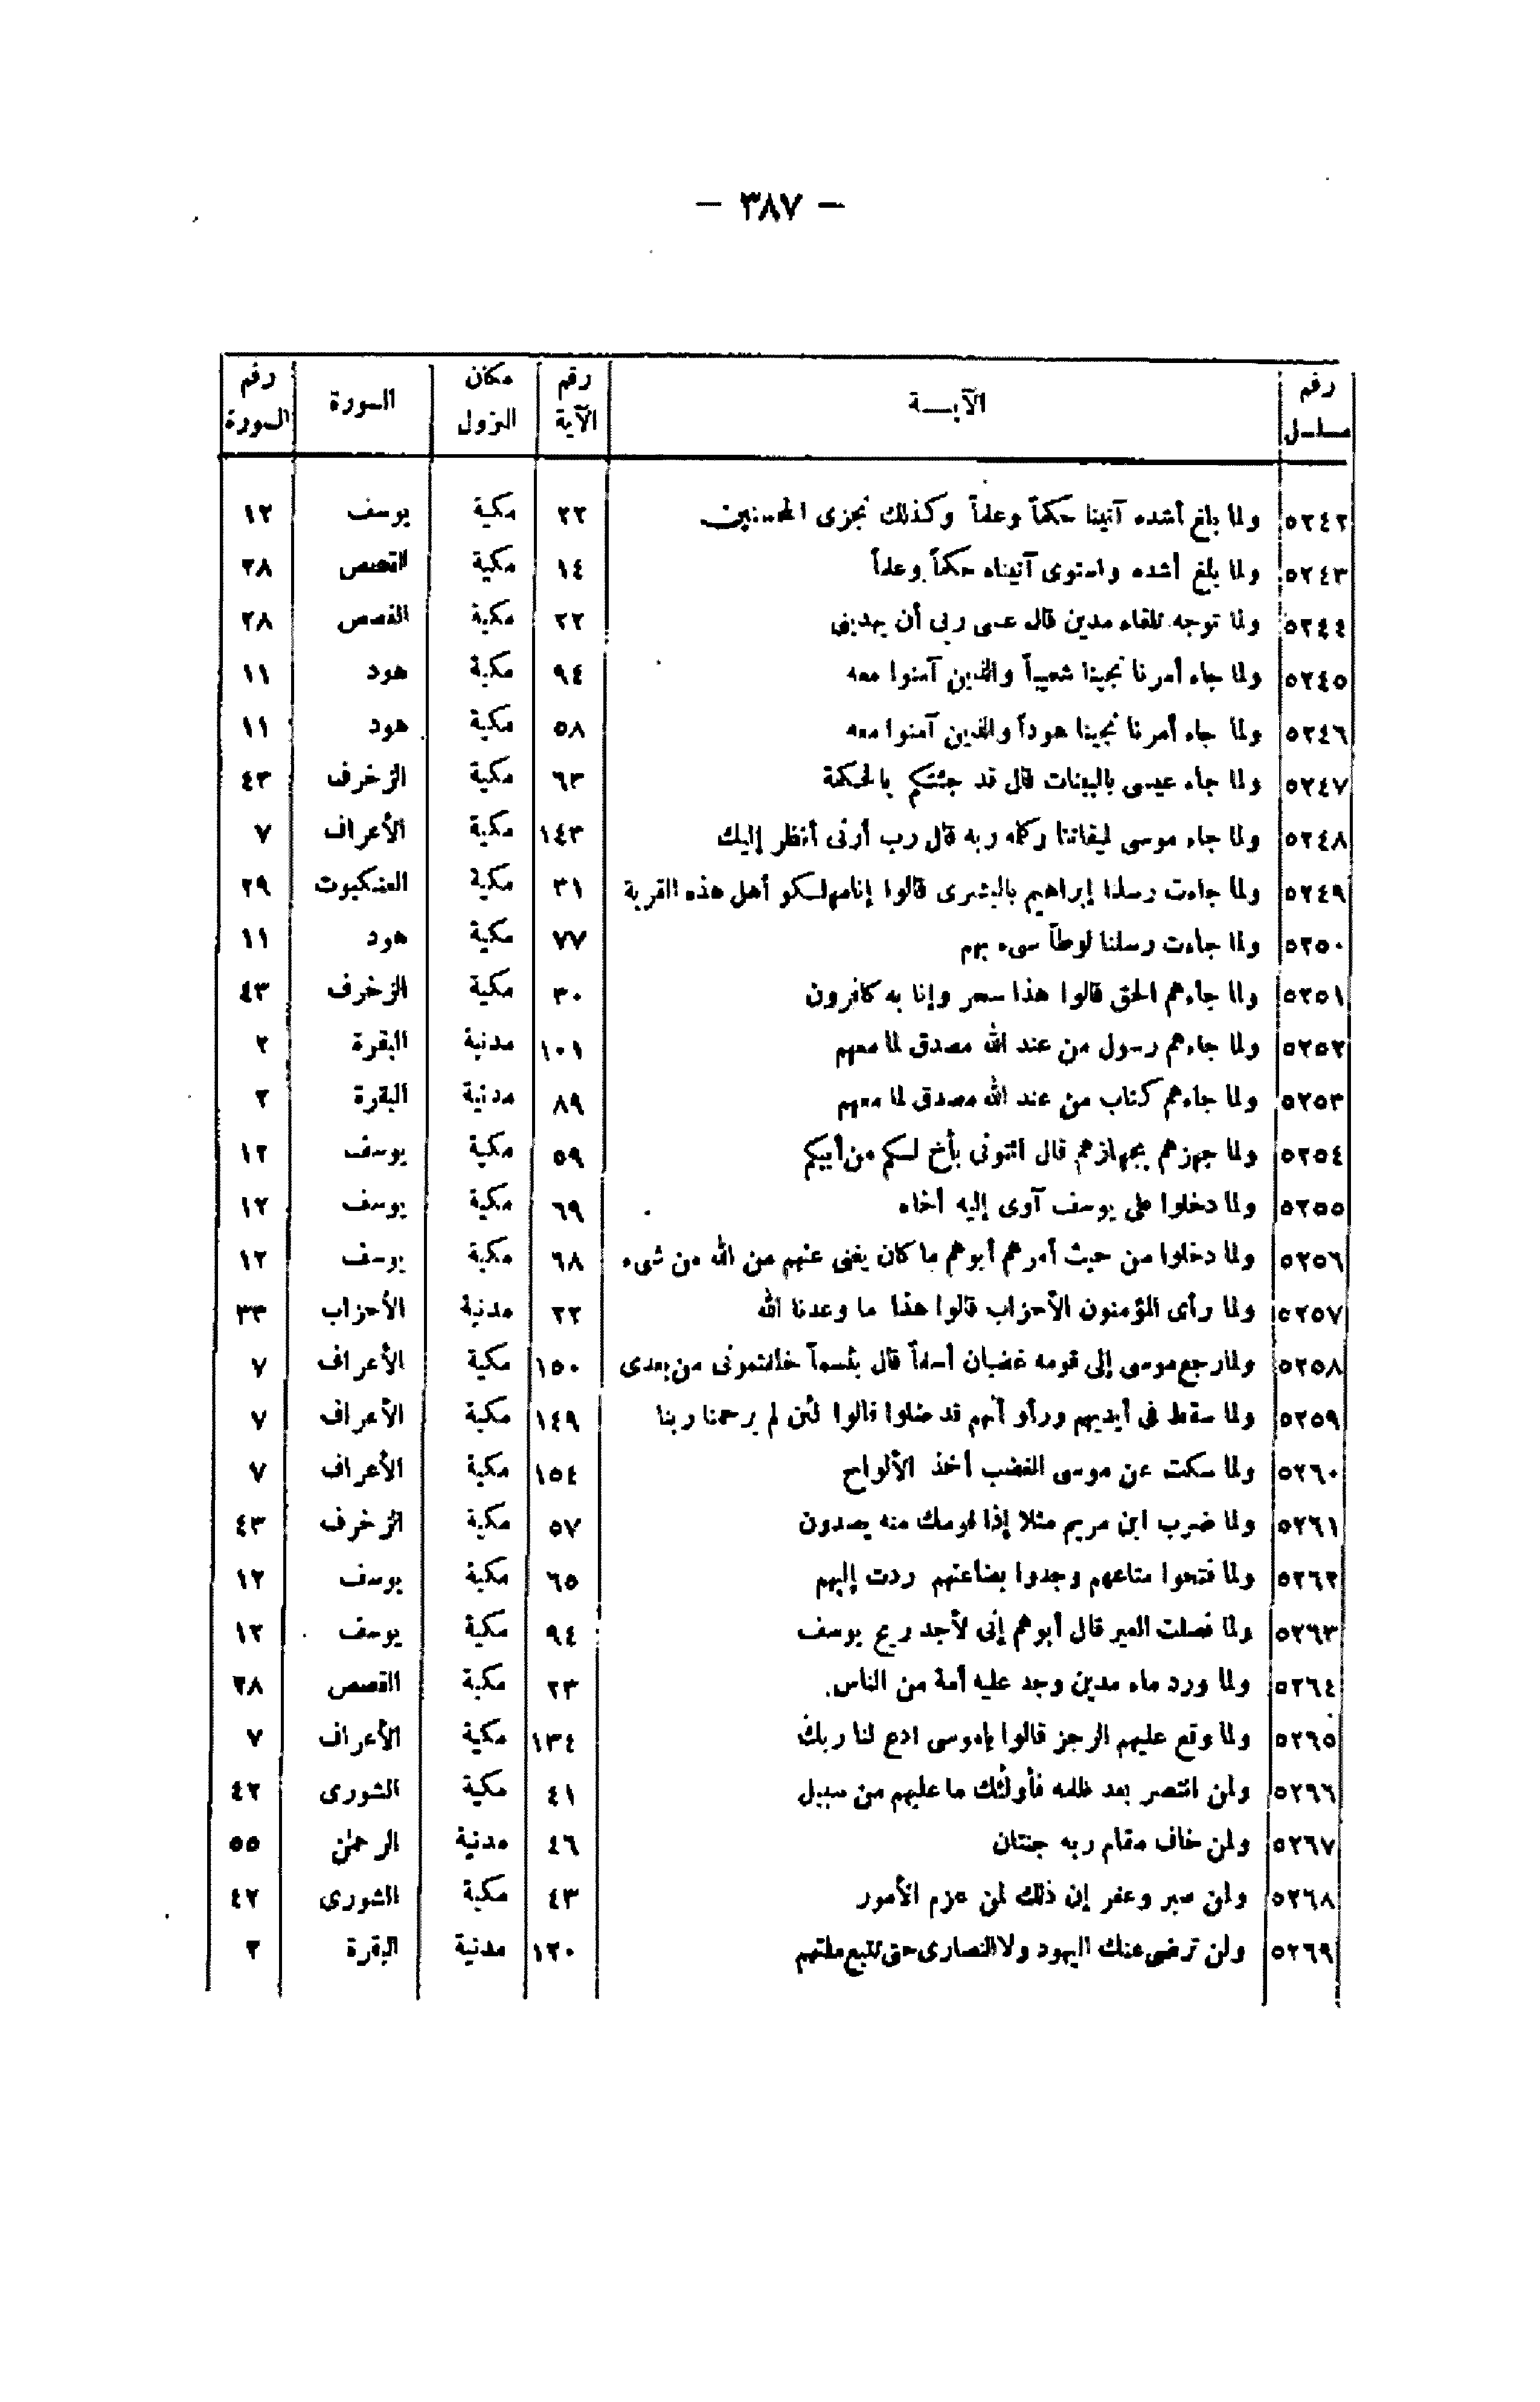 — ٣٨٧ —
رقم مسلسل | الآيــة | رقم الآية | مكان النزول | السورة | رقم السورة
٥٢٤٢ | ولما بلغ أشده آتينا حكماً وعلماً وكذلك نجزى المحسنين | ٢٢ | مكية | يوسف | ١٢
٥٢٤٣ | ولما بلغ أشده واستوى آتيناه حكماً وعلماً | ١٤ | مكية | القصص | ٢٨
٥٢٤٤ | ولما توجه تلقاء مدين قال عسى ربى أن يهدينى | ٢٢ | مكية | القصص | ٢٨
٥٢٤٥ | ولما جاء أمرنا نجينا شعيباً والذين آمنوا معه | ٩٤ | مكية | هود | ١١
٥٢٤٦ | ولما جاء أمرنا نجينا هوداً والذين آمنوا معه | ٥٨ | مكية | هود | ١١
٥٢٤٧ | ولما جاء عيسى بالبينات قال قد جئتكم بالحكمة | ٦٣ | مكية | الزخرف | ٤٣
٥٢٤٨ | ولما جاء موسى لميقاتنا وكلمه ربه قال رب أرنى أنظر إليك | ١٤٣ | مكية | الأعراف | ٧
٥٢٤٩ | ولما جاءت رسلنا إبراهيم بالبشرى قالوا إنا مهلكو أهل هذه القرية | ٣١ | مكية | العنكبوت | ٢٩
٥٢٥٠ | ولما جاءت رسلنا لوطاً سىء بهم | ٧٧ | مكية | هود | ١١
٥٢٥١ | ولما جاءهم الحق قالوا هذا سحر وإنا به كافرون | ٣٠ | مكية | الزخرف | ٤٣
٥٢٥٢ | ولما جاءهم رسول من عند الله مصدق لما معهم | ١٠١ | مدنية | البقرة | ٢
٥٢٥٣ | ولما جاءهم كتاب من عند الله مصدق لما معهم | ٨٩ | مدنية | البقرة | ٢
٥٢٥٤ | ولما جهزهم بجهازهم قال ائتونى بأخ لكم من أبيكم | ٥٩ | مكية | يوسف | ١٢
٥٢٥٥ | ولما دخلوا على يوسف آوى إليه أخاه | ٦٩ | مكية | يوسف | ١٢
٥٢٥٦ | ولما دخلوا من حيث أمرهم أبوهم ما كان يغنى عنهم من الله من شىء | ٦٨ | مكية | يوسف | ١٢
٥٢٥٧ | ولما رأى المؤمنون الأحزاب قالوا هذا ما وعدنا الله | ٢٢ | مدنية | الأحزاب | ٣٣
٥٢٥٨ | ولما رجع موسى إلى قومه غضبان أسفاً قال بئسما خلفتمونى من بعدى | ١٥٠ | مكية | الأعراف | ٧
٥٢٥٩ | ولما سقط فى أيديهم ورأو أنهم قد ضلوا قالوا لئن لم يرحمنا ربنا | ١٤٩ | مكية | الأعراف | ٧
٥٢٦٠ | ولما سكت عن موسى الغضب أخذ الألواح | ١٥٤ | مكية | الأعراف | ٧
٥٢٦١ | ولما ضرب ابن مريم مثلا إذا قومك منه يصدون | ٥٧ | مكية | الزخرف | ٤٣
٥٢٦٢ | ولما فتحوا متاعهم وجدوا بضاعتهم ردت إليهم | ٦٥ | مكية | يوسف | ١٢
٥٢٦٣ | ولما فصلت العير قال أبوهم إنى لأجد ريح يوسف | ٩٤ | مكية | يوسف | ١٢
٥٢٦٤ | ولما ورد ماء مدين وجد عليه أمة من الناس. | ٢٣ | مكية | القصص | ٢٨
٥٢٦٥ | ولما وقع عليهم الرجز قالوا ياموسى ادع لنا ربك | ١٣٤ | مكية | الأعراف | ٧
٥٢٦٦ | ولمن انتصر بعد ظلمه فأولئك ما عليهم من سبيل | ٤١ | مكية | الشورى | ٤٢
٥٢٦٧ | ولمن خاف مقام ربه جنتان | ٤٦ | مدنية | الرحمن | ٥٥
٥٢٦٨ | ولمن صبر وغفر إن ذلك لمن عزم الأمور | ٤٣ | مكية | الشورى | ٤٢
٥٢٦٩ | ولن ترضى عنك اليهود ولا النصارى حتى تتبع ملتهم | ١٢٠ | مدنية | البقرة | ٢